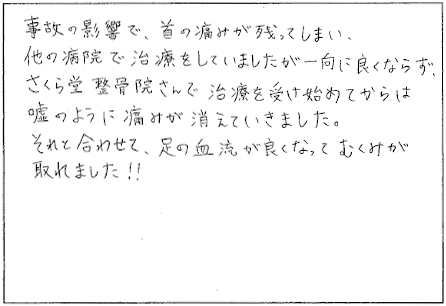 事故の影響で、首の痛みが残ってしまい、
他の病院で治療をしていましたが一向に良くならず、
さくら堂整骨院さんで治療を受け始めてからは
嘘のように痛みが消えていきました。
それと合わせて、足の血流が良くなってむくみが
取れました!!